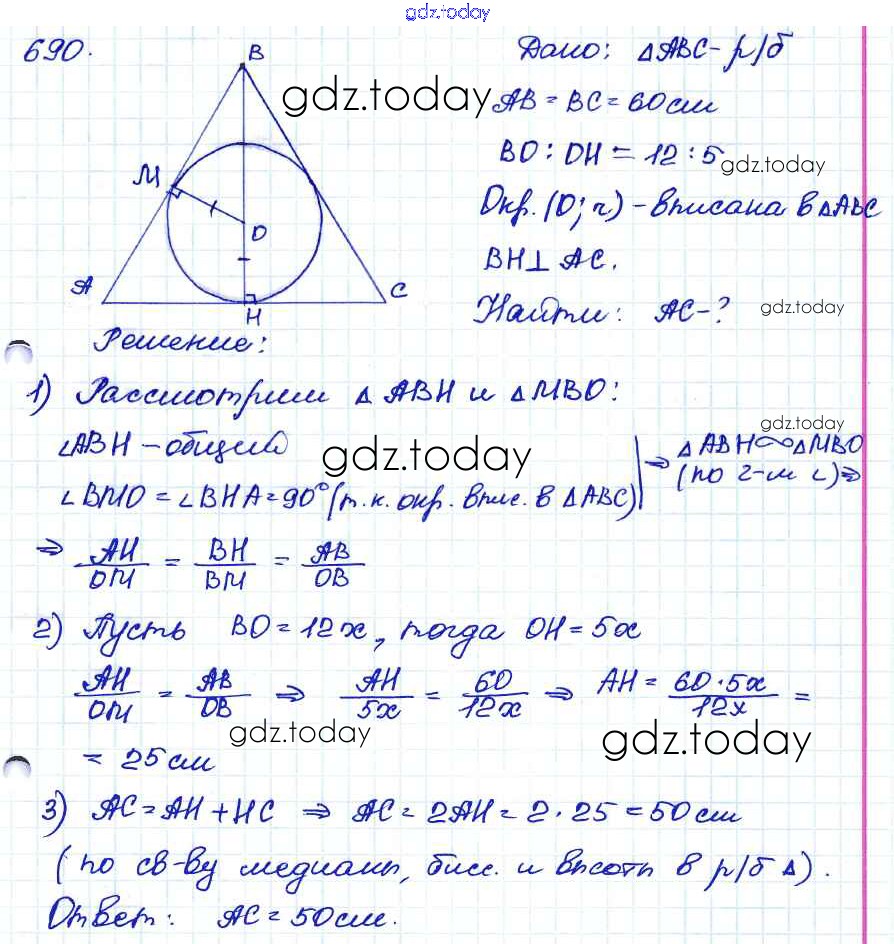 gdz.today
690.
B
M
O
A
C
H
Дано: △ABC - р/б
gdz.today
AB = BC = 60 см
BO : OH = 12 : 5
gdz.today
Окр. (O; r) - вписана в △ABC
BH ⊥ AC.
Найти: AC - ?
gdz.today
Решение:
1) Рассмотрим △ ABH и △MBO:
gdz.today
∠ABH - общий
gdz.today
∠BMO = ∠BHA = 90° (т.к. окр. впис. в △ABC)
⇒ △ABH ∾ △MBO
(по 2-м ∠) ⇒
⇒ AH/OM = BH/BM = AB/OB
2) Пусть BO = 12x, тогда OH = 5x
AH/OM = AB/OB ⇒ AH/5x = 60/12x ⇒ AH = 60·5x/12x =
gdz.today
gdz.today
= 25 см
3) AC = AH + HC ⇒ AC = 2AH = 2·25 = 50 см
(по св-ву медианы, бисс. и высоты в р/б △).
Ответ: AC = 50 см.